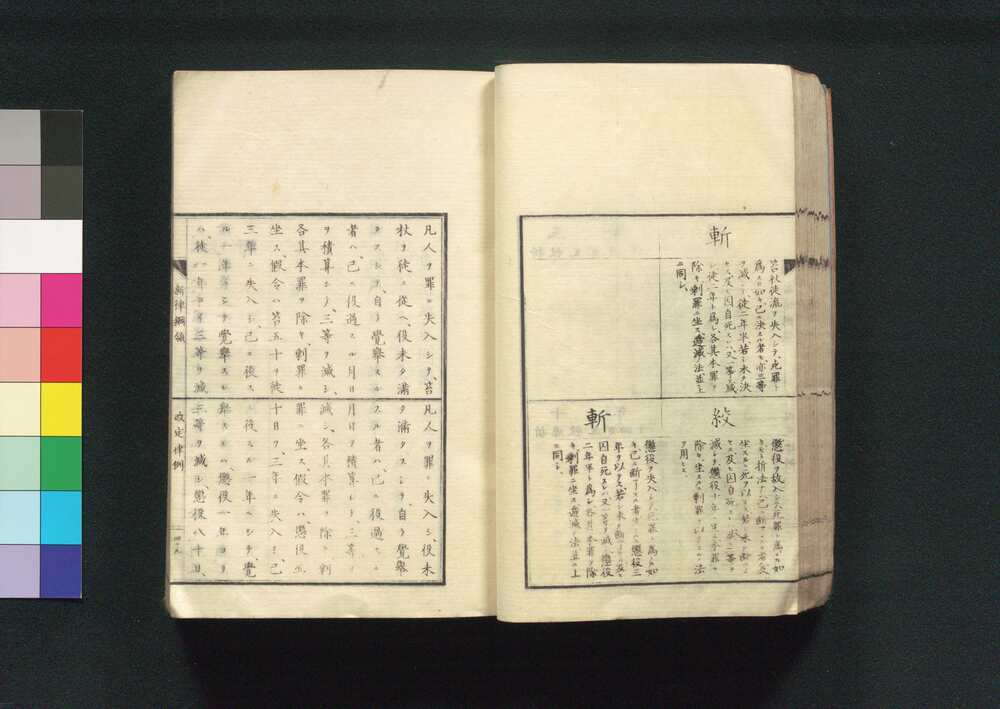 斬
笞杖徒流ヲ失入シテ死罪ト
爲スノ如キ已ニ決スル者ハ亦三等
ヲ減シ徒二年半若シ未タ決
セス及ヒ因自死スレハ又一等ヲ減
シ徒二年ト爲シ各其本罪ヲ
除キ剩罪ニ坐ス遞減法並上
ニ同シ
絞
懲役ヲ故入シ死罪ト爲スノ如
除キ坐スルノ剩罪ハ
ヲ用ヒス
斬
懲役ヲ失入シ死罪ト爲ス如
キ已ニ斷シスル者ハ懲役三
年ヲ以テス若シ未タ斷セス及ヒ
因自死スレハ又一等ヲ減シ懲役
二年半ト爲シ各其本罪ヲ除
キ剩罪ニ坐ス遞減法並ニ上
ニ同シ
凡人ヲ罪ニ失入シテ、笞
杖ヲ徒ニ從ヘ、役未タ滿
タスシテ、自ラ覺舉スル
者ハ、已ニ役過スル月日
ヲ積算シテ、三等ヲ減シ、
各其本罪ヲ除キ、剩罪ニ
坐ス、假令ハ笞五十ヲ徒
三年ニ失入シ、已ニ役ス
ル一年ニシテ覺舉スレ
ハ、徒一年ヨリ三等ヲ減
凡人ヲ罪ニ失入シ、役未
タ滿タスシテ、自ラ覺舉
スル者ハ、已ニ役過スル
月日ヲ積算シテ、三等ヲ
減シ、各其本罪ヲ除キ、剩
罪ニ坐ス、假令ハ、懲役五
十日ヲ、三年ニ失入シ、已
ニ役スル一年ニシテ、覺
舉スレハ、懲役一年ヨリ
三等ヲ減シ、懲役八十日、
新律綱領
改定律例